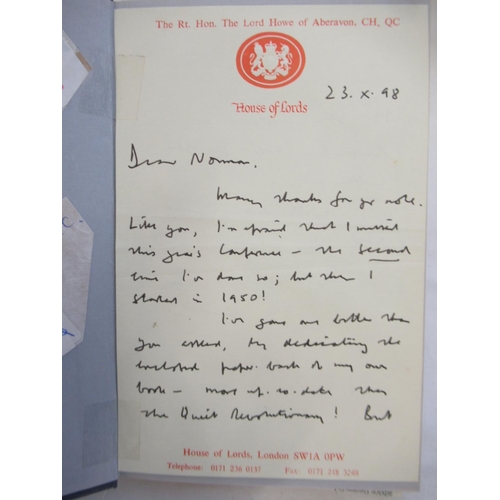 The Rt. Hon. The Lord Howe of Aberavon, CH, QC
House of Lords
23. x. 98
Dear Norman.
Many thanks for yr note.
Like you, I'm afraid that I missed
this year's Conference – the second
time I've done so; but then I
started in 1950!
I've gone one better than
you asked, by dedicating the
enclosed paper-back of my own
book – more up-to-date than
the Quiet Revolutionary! But
House of Lords, London SW1A 0PW
Telephone: 0171 Fax: 0171